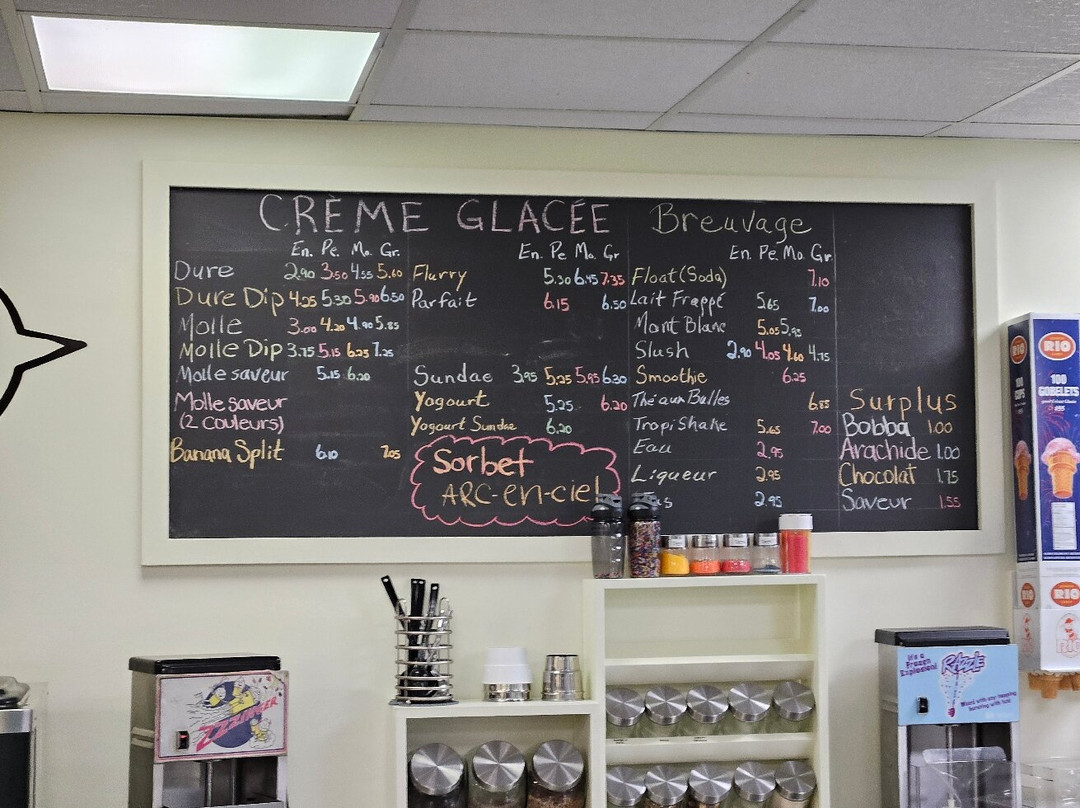 CRÈME GLACÉE
En. Pe. Mo. Gr.
Dure 2.90 3.50 4.55 5.60
Dure Dip 4.25 5.30 5.90 6.50
Molle 3.00 4.20 4.90 5.85
Molle Dip 3.75 5.15 6.25 7.25
Molle saveur 5.15 6.20
Molle saveur
(2 couleurs)
Banana Split 6.10 7.05
En. Pe Mo. Gr
Flurry 5.30 6.45 7.35
Parfait 6.15 6.50
Sundae 3.95 5.25 5.95 6.20
Yogourt 5.25 6.20
Yogourt Sundae 6.20
Sorbet
ARC-en-ciel
Breuvage
En. Pe Mo. Gr.
Float (Soda) 7.10
Lait Frappé 5.65 7.00
Mont Blanc 5.05 5.95
Slush 2.90 4.05 4.60 4.75
Smoothie 6.25
Thé aux Bulles 6.85
Tropi Shake 5.65 7.00
Eau 2.95
Liqueur 2.95
us 2.95
Surplus
Bobba 1.00
Arachide 1.00
Chocolat 1.75
Saveur 1.55
RIO
RIO
100
GOBELETS
100
CUPS
RIO
RIO
ZZINGER
It's a
Frozen
Explosion!
RAZZLE
Mixed with any topping
bursting with fun!